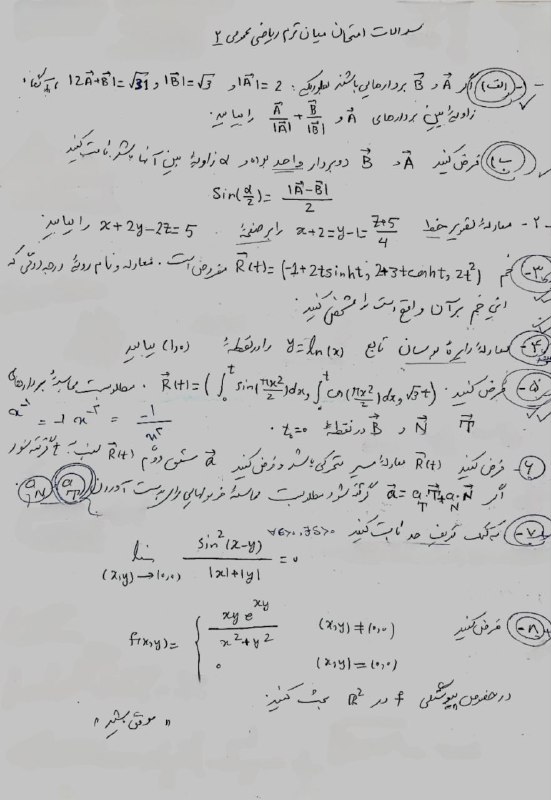 سوالات امتحان میان ترم ریاضی عمومی ۲
۱- الف) اگر A⃗ و B⃗ بردارهایی باشند بطوریکه: |A⃗|=2 و |B⃗|=√3 و |2A⃗+B⃗|=√31 آنگاه
زاویهٔ بین بردارهای A⃗ و A⃗/|A⃗| + B⃗/|B⃗| را بیابید.
ب) فرض کنید A⃗ و B⃗ دو بردار واحد بوده و α زاویهٔ بین آنها باشد ثابت کنید
Sin(α/2) = |A⃗-B⃗|/2
۲- معادلهٔ تصویر خط x+2=y-1=(z+5)/4 را بر صفحهٔ x+2y-2z=5 را بیابید.
۳- خم R⃗(t)=(-1+2t sinht, 2+3t cosht, 2t²) مفروض است. معادله و نام رویهٔ درجه دوئی که
این خم بر آن واقع است را مشخص کنید.
۴- معادلهٔ دایرهٔ بوسان تابع y=ln(x) را در نقطهٔ (1,0) بیابید
۵- فرض کنید R⃗(t) = (∫₀ᵗ sin(πx²/2)dx, ∫₀ᵗ cos(πx²/2)dx, √3 t). مطلوبست محاسبهٔ بردارهای
T⃗ N⃗ و B⃗ در نقطهٔ t₀=0.
۶- فرض کنید R⃗(t) معادلهٔ مسیر متحرکی باشد و فرض کنید a⃗ مشتق دوم R⃗(t) نسبت به t گرفته شود
اگر a⃗ = a_T T⃗ + a_N N⃗ گرفته شود مطلوبست محاسبهٔ فرمولهایی برای بدست آوردن a_T و a_N
۷- به کمک تعریف حد ثابت کنید ∀ε>0, ∃δ>0
lim (x,y)→(0,0) sin²(x-y) / (|x|+|y|) = 0
۸- فرض کنید f(x,y) = { xy e^{xy} / (x²+y²) (x,y)≠(0,0)
0 (x,y)=(0,0)
در خصوص پیوستگی f در R² بحث کنید.
"موفق باشید"